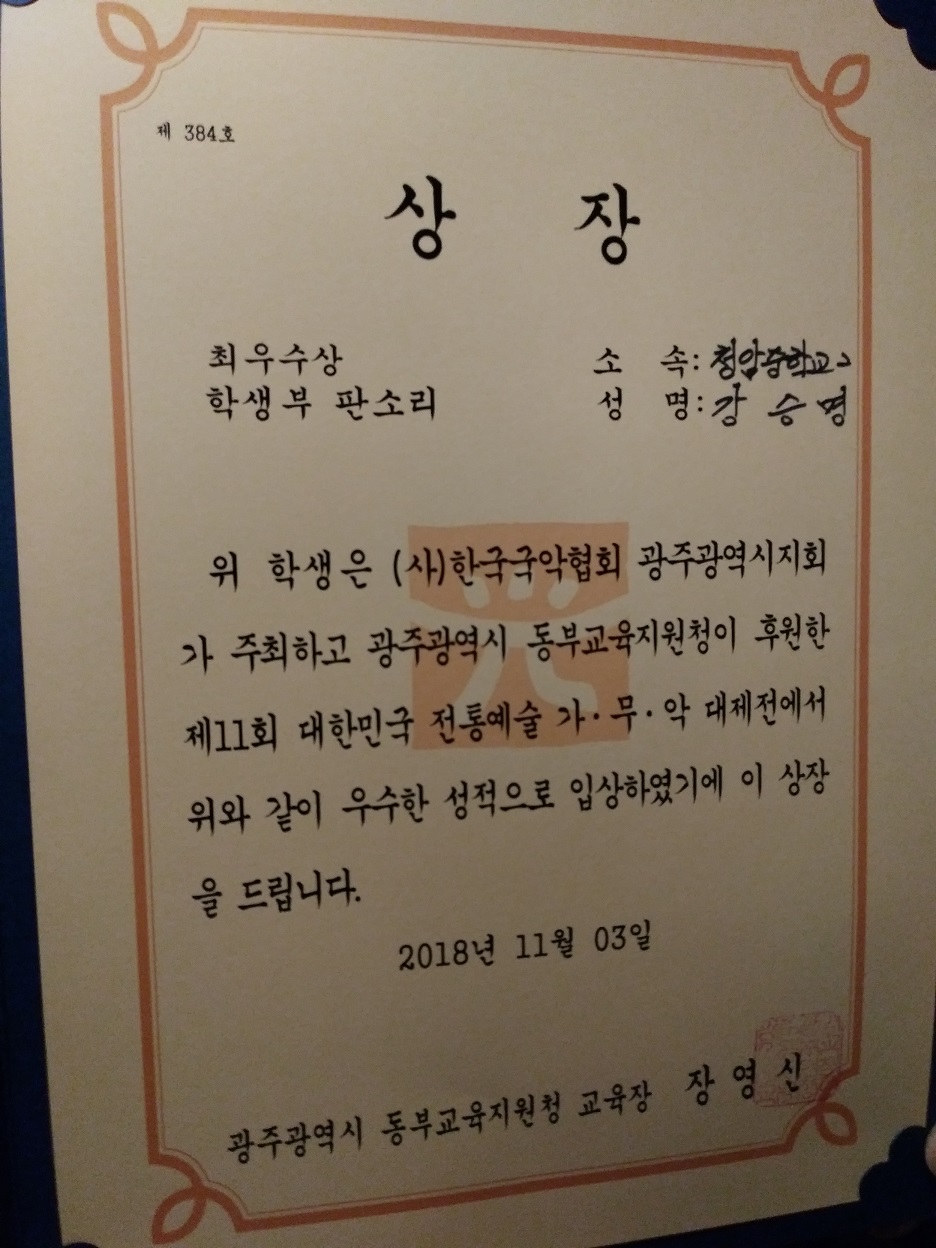 제 384호
상 장
최우수상
학생부 판소리
소 속: 청암중학교2
성 명: 강 승 명
위 학생은 (사)한국국악협회 광주광역시지회
가 주최하고 광주광역시 동부교육지원청이 후원한
제11회 대한민국 전통예술 가·무·악 대제전에서
위와 같이 우수한 성적으로 입상하였기에 이 상장
을 드립니다.
2018년 11월 03일
광주광역시 동부교육지원청 교육장 장 영 신